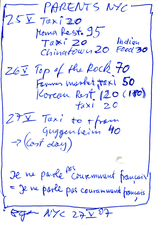 PARENTS NYC
25 V Taxi 20
Moma Rest. 95
Taxi 20 Indian
Chinatown 20 Food 30
26 V Top of the Rock 70
Farmer market, taxi 50
Korean Rest, 120 (180)
taxi 20
27 V Taxi to + from
Guggenheim 40
→ (last day)
Je ne parle pas couramment français
= Je ne parle pas couramment français,
NYC 27 V 07